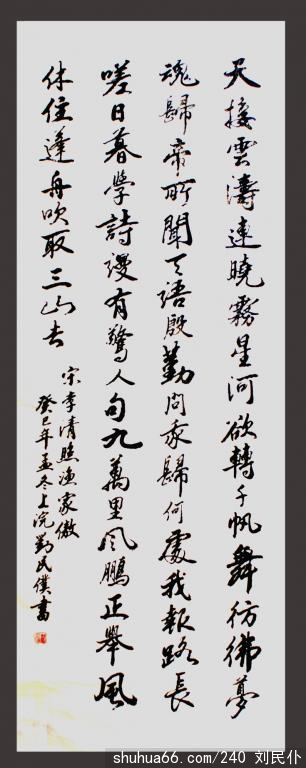 天接雲濤連曉霧星河欲轉千帆舞彷彿夢
魂歸帝所聞天語殷勤問我歸何處我報路長
嗟日暮學詩謾有驚人句九萬里風鵬正舉風
休住蓬舟吹取三山去
宋李清照漁家傲
癸巳年孟冬上浣劉民僕書
shuhua66.com/240 刘民仆